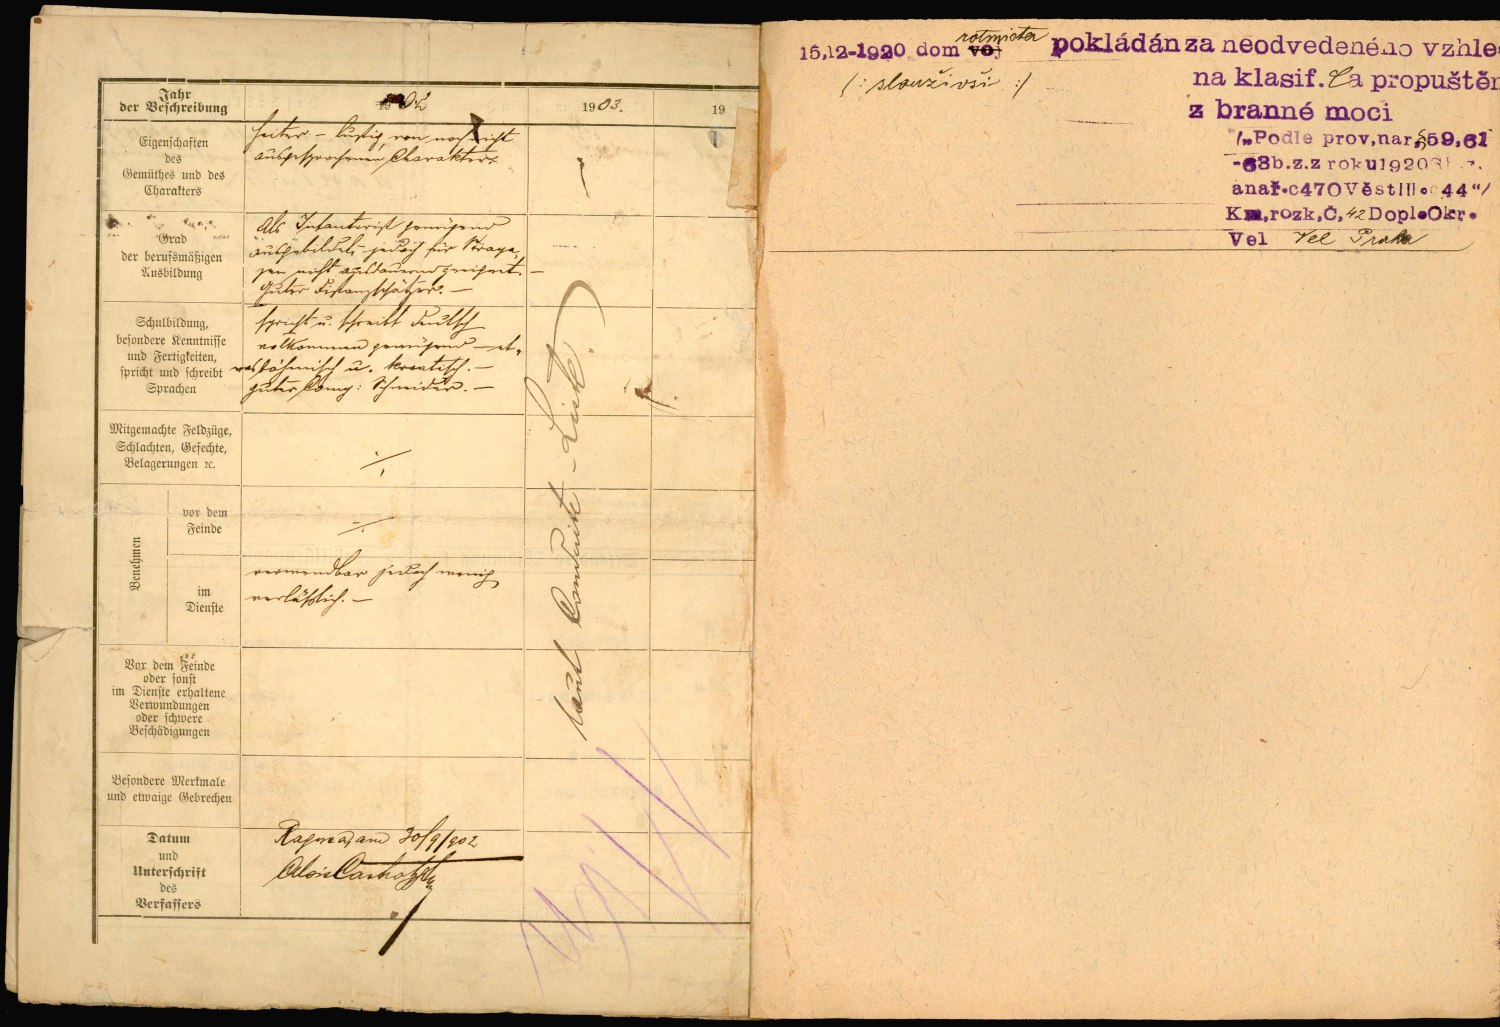 Jahr
der Beschreibung
1902
1903.
19
Eigenschaften
des
Gemüthes und des
Charakters
heiter – lustig, von noch nicht
ausgesprochenem Charakter.
Grad
der berufsmäßigen
Ausbildung
Als Infanterist genügend
ausgebildet, jedoch für Strapa-
zen nicht ausdauernd geeignet. –
Guter Distanzschätzer. –
Schulbildung,
besondere Kenntnisse
und Fertigkeiten,
spricht und schreibt
Sprachen
spricht u. schreibt deutsch
vollkommen genügend – et-
was böhmisch u. kroatisch. –
guter Comp: Schneider. –
Mitgemachte Feldzüge,
Schlachten, Gefechte,
Belagerungen ꝛc.
Benehmen
vor dem
Feinde
im
Dienste
verwendbar jedoch wenig
verläßlich. –
Vor dem Feinde
oder sonst
im Dienste erhaltene
Verwundungen
oder schwere
Beschädigungen
Besondere Merkmale
und etwaige Gebrechen
Datum
und
Unterschrift
des
Verfassers
am 30/9/902
Alois
laut Conduite-Liste.
15,12-1920 dom voj rotmistra pokládán za neodvedeného vzhle
(: sloužívší :)
na klasif. C a propuštěn
z branné moci
/„Podle prov,nar,§59,61
-63b.z.z roku1920
anař.c470Věstlll.c 44“/
Km,rozk,Č,42Dopl.Okr.
Vel Vel Praha